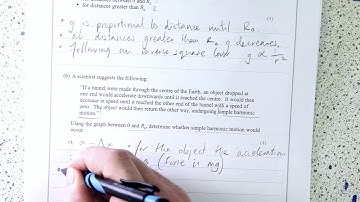 for distances between 0 and R
for distances greater than R 2
• g is proportional to distance until R
• at distances greater than R g decreases,
following an inverse square law g ∝ 1/r²
(b) A scientist suggests the following:
"If a tunnel were made through the centre of the Earth, an object dropped at
one end would accelerate downwards until it reached the centre. It would then
decrease in speed until it reached the other end of the tunnel with a speed of
zero. The object would then return the other way, undergoing simple harmonic
motion."
Using the graph between 0 and R, determine whether simple harmonic motion would
occur
a ∝ - for the object the acceleration
(force is mg)